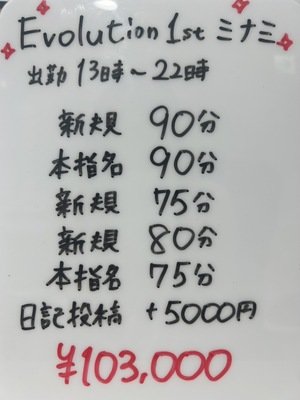 Evolution 1st ミナミ
出勤 13時～22時
新規 90分
本指名 90分
新規 75分
新規 80分
本指名 75分
日記投稿 +5000円
¥103,000